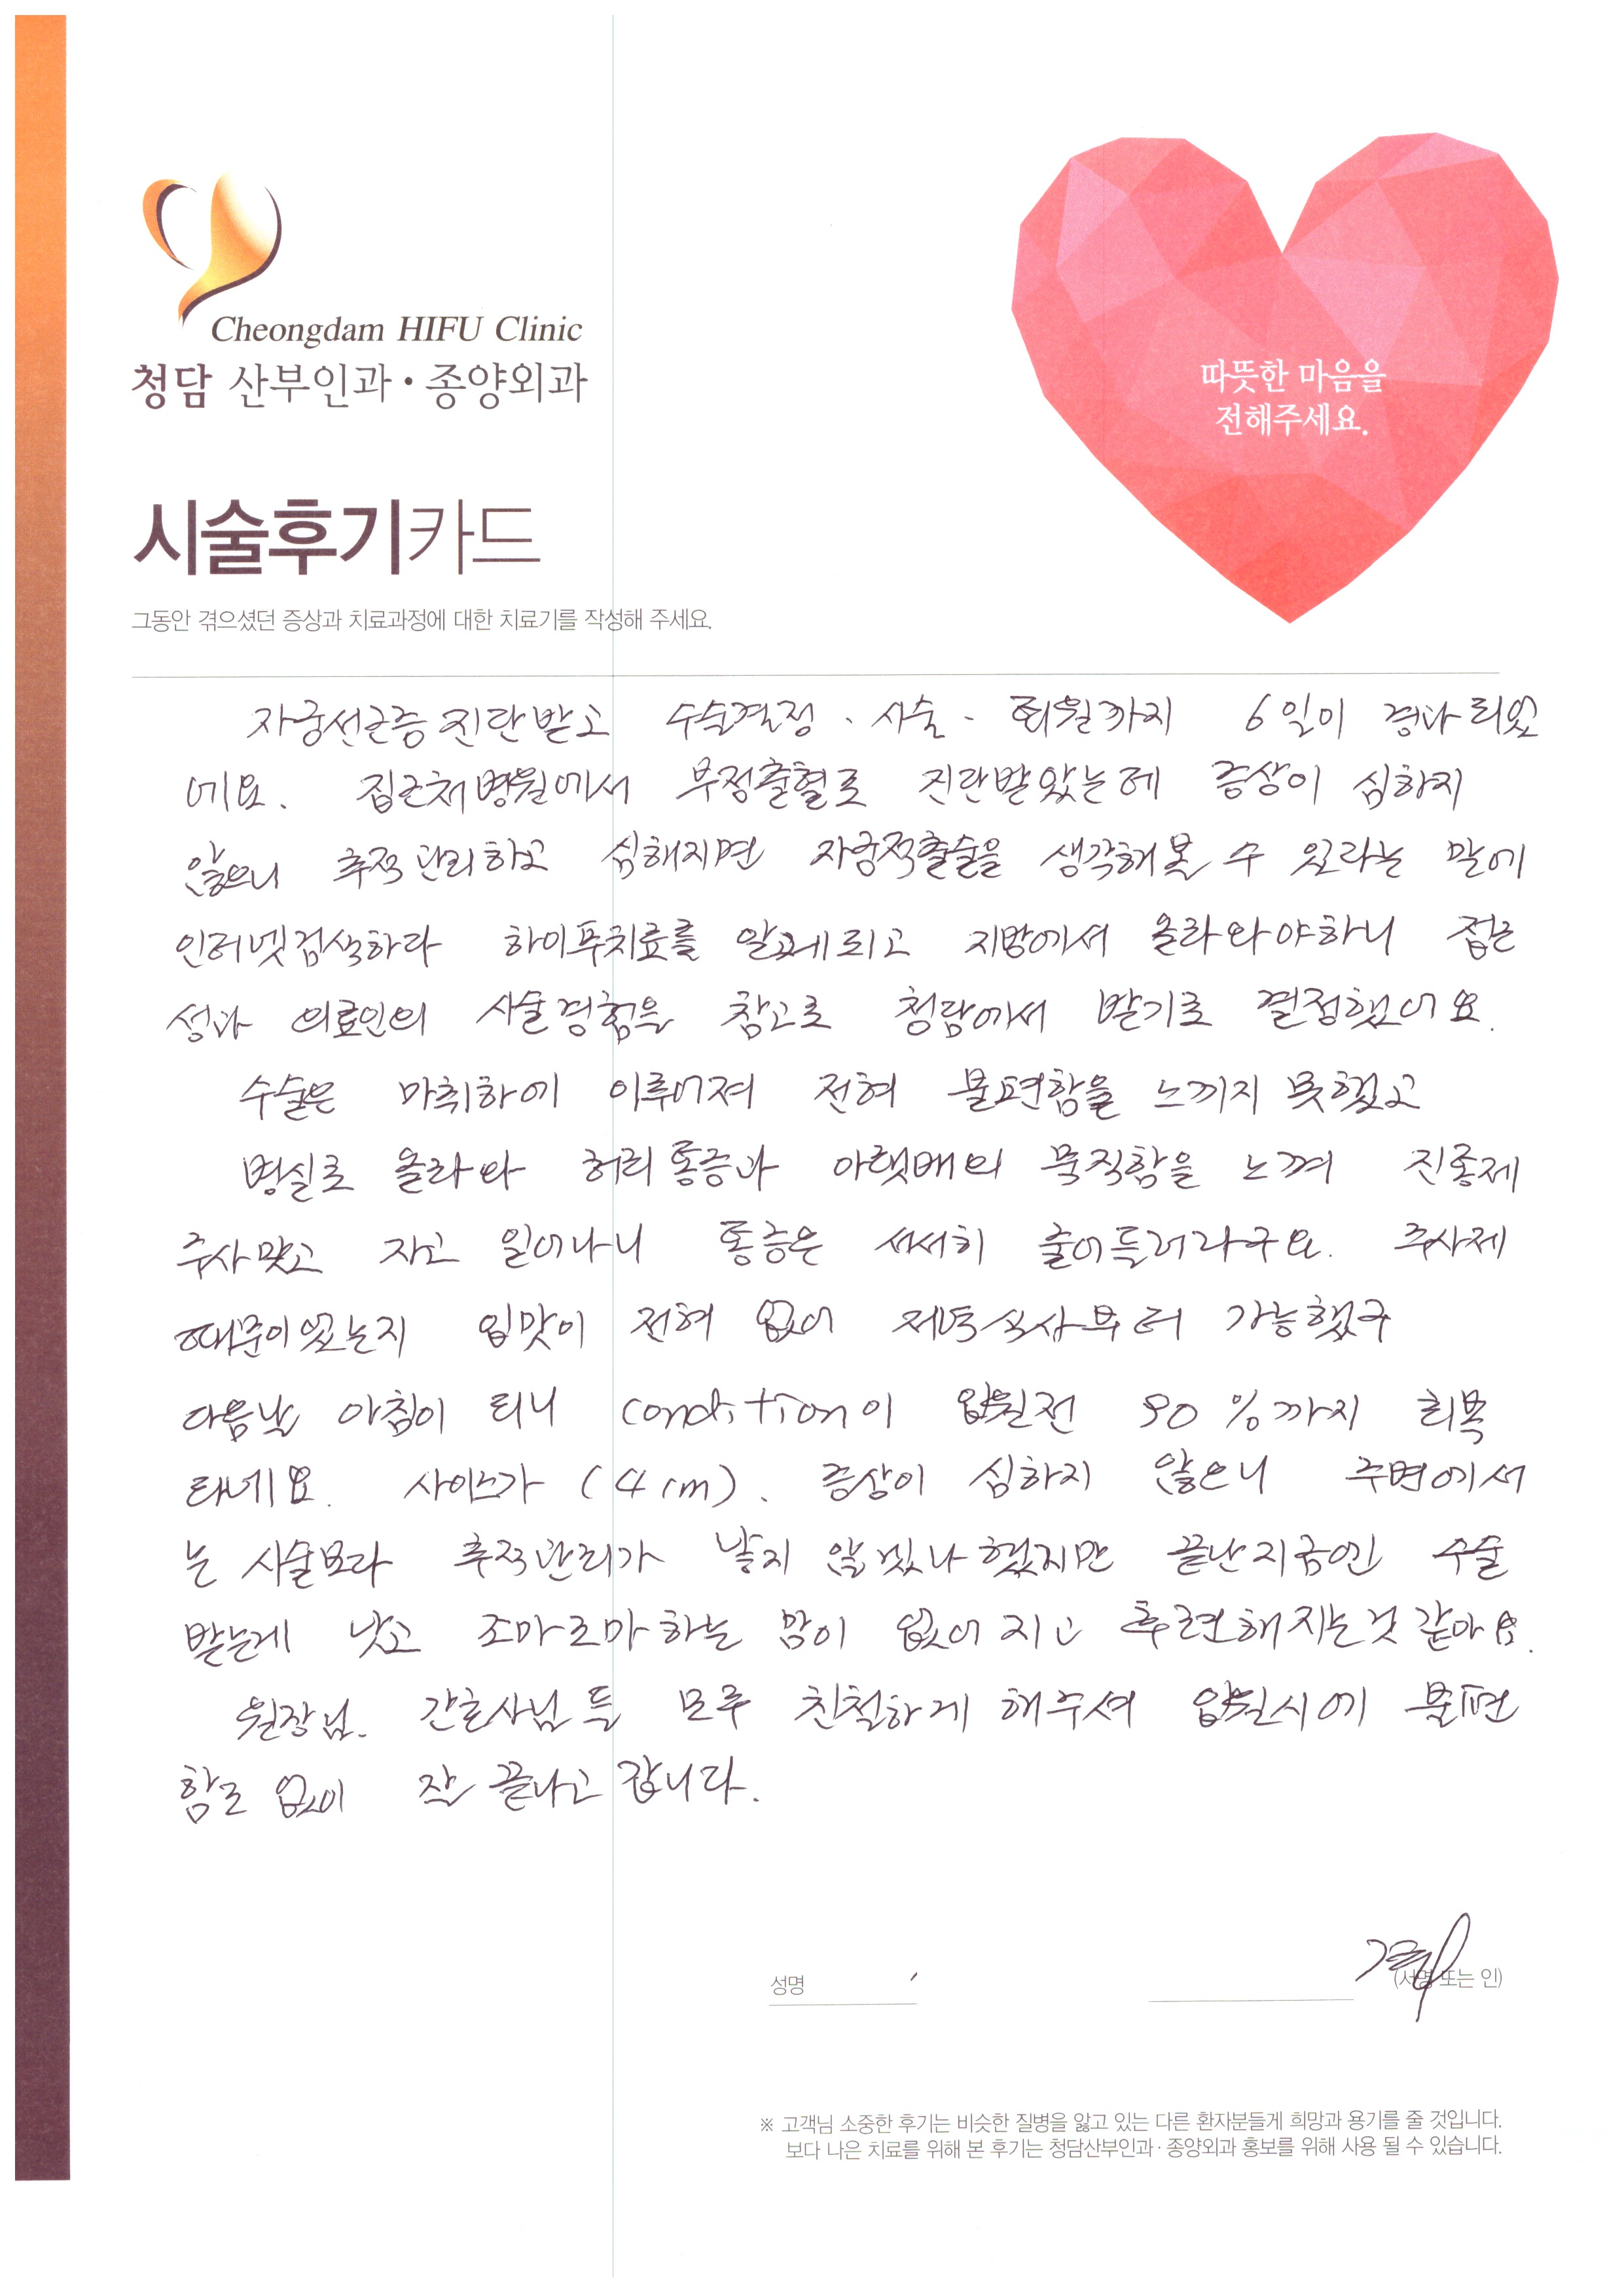 Cheongdam HIFU Clinic
청담 산부인과·종양외과
따뜻한 마음을
전해주세요.
시술후기카드
그동안 겪으셨던 증상과 치료과정에 대한 치료기를 작성해 주세요.
자궁선근증 진단받고 수술결정. 시술. 퇴원까지 6일이 경과 되었
네요. 집근처병원에서 부정출혈로 진단받았는데 증상이 심하지
않으니 추적관리하고 심해지면 자궁적출술을 생각해볼 수 있다는 말에
인터넷검색하다 하이푸치료를 알게되고 지방에서 올라와야하니 접근
성과 의료인의 시술경험을 참고로 청담에서 받기로 결정했어요.
수술은 마취하에 이루어져 전혀 불편함을 느끼지 못했고
병실로 올라와 허리통증과 아랫배의 묵직함을 느껴 진통제
주사맞고 자고 일어나니 통증은 서서히 줄어들더라구요. 주사제
때문이었는지 입맛이 전혀 없어 저녁식사부터 가능했구
다음날 아침이 되니 condition이 입원전 90%까지 회복
되네요. 사이즈가 (4cm). 증상이 심하지 않으니 주변에서
는 시술보다 추적관리가 낳지 않겠나 했지만 끝난지금은 수술
받는게 낫고 조마조마하는 맘이 없어지고 후련해지는것 같아요.
원장님. 간호사님들 모두 친절하게 해주셔 입원시에 불편
함도 없이 잘 끝나고 갑니다.
성명 (서명 또는 인)
※ 고객님 소중한 후기는 비슷한 질병을 앓고 있는 다른 환자분들게 희망과 용기를 줄 것입니다.
보다 나은 치료를 위해 본 후기는 청담산부인과·종양외과 홍보를 위해 사용 될 수 있습니다.